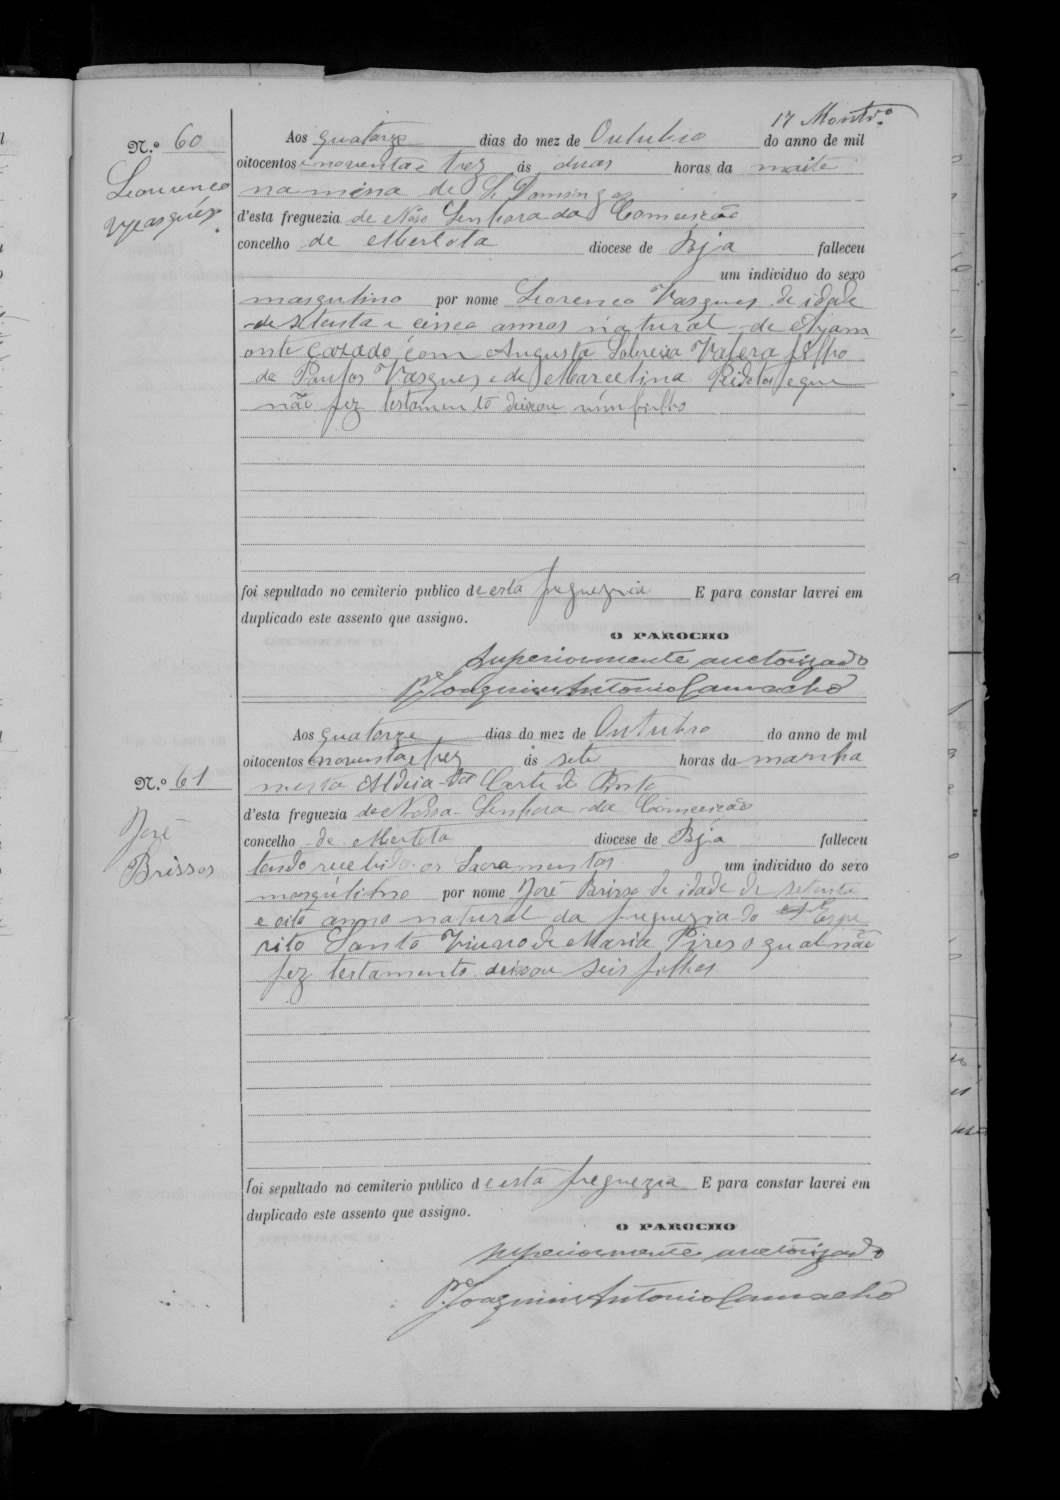 17 Montr.º
N.º 60
Lourenco
Vasques.
Aos quatorze dias do mez de Outubro do anno de mil
oitocentos e noventa e trez ás duas horas da noite
na mina de S. Domingos
d'esta freguezia de Nossa Senhora da Conceição
concelho de Mertola diocese de Beja falleceu
um individuo do sexo
masgulino por nome Lorenco Vasques de idade
de setenta e cinco annos natural de Ayam
onte cazado com Augusta Valera filho
de Vasques e de Marcelina e que
não fez testamento deixou um filho
foi sepultado no cemiterio publico de esta freguezia E para constar lavrei em
duplicado este assento que assigno.
O PAROCHO
Superiormente auctorizado
P.e Joaquim Antonio Camacho
N.º 61
José
Brissos
Aos quatorze dias do mez de Outubro do anno de mil
oitocentos noventa e trez ás sete horas da manha
nesta Aldeia da Corte do Pinto
d'esta freguezia de Nossa Senhora da Conceição
concelho de Mertola diocese de Beja falleceu
tendo recebido os Sacramentos um individuo do sexo
masgulino por nome José Brisso de idade de setenta
e oito anno natural da freguezia do Espe
rito Santo Viuvo de Maria Pires o qual não
fez testamento deixou seis filhos
foi sepultado no cemiterio publico de esta freguezia E para constar lavrei em
duplicado este assento que assigno.
O PAROCHO
superiormente auctorizado
P.e Joaquim Antonio Camacho